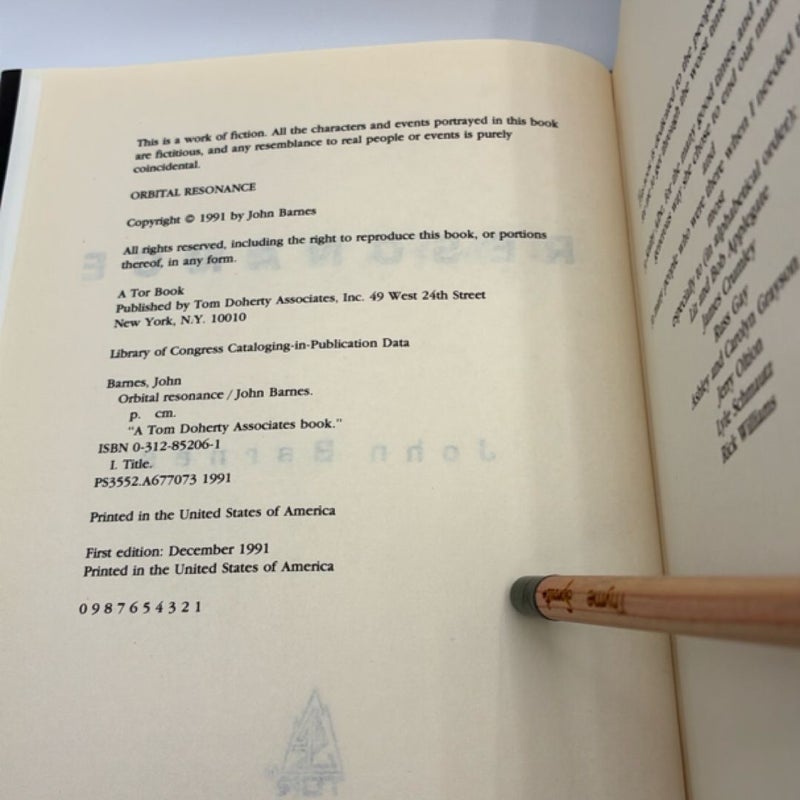 This is a work of fiction. All the characters and events portrayed in this book
are fictitious, and any resemblance to real people or events is purely
coincidental.
ORBITAL RESONANCE
Copyright © 1991 by John Barnes
All rights reserved, including the right to reproduce this book, or portions
thereof, in any form.
A Tor Book
Published by Tom Doherty Associates, Inc. 49 West 24th Street
New York, N.Y. 10010
Library of Congress Cataloging-in-Publication Data
Barnes, John
Orbital resonance / John Barnes.
p. cm.
"A Tom Doherty Associates book."
ISBN 0-312-85206-1
I. Title.
PS3552.A677073 1991
Printed in the United States of America
First edition: December 1991
Printed in the United States of America
0 9 8 7 6 5 4 3 2 1
RESONANCE
John Barnes
TOR
is dedicated to the people
through the worst time
for the many good times and
why she chose to end our
and
people who were there when I needed
most
especially to (in alphabetical order):
Liz and Bob Applegate
James Crumley
Russ Gay
Ashley and Carolyn Grayson
Jerry Oltion
Lyle Schmautz
Rick Williams
Thyme
Sprout